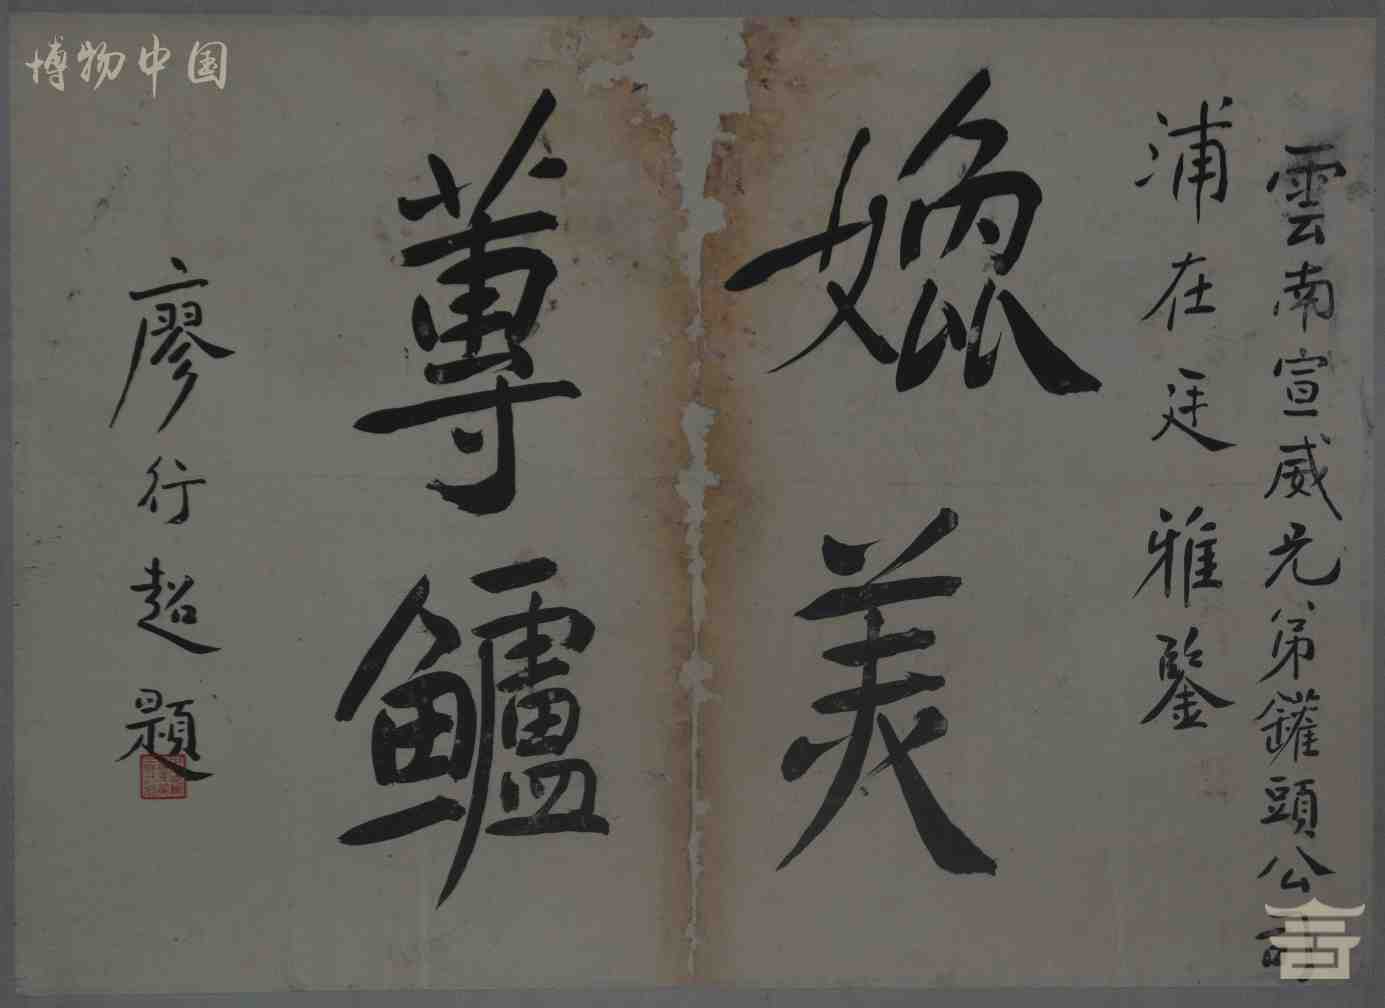 雲南宣威兄弟鑵頭公司
浦在廷 雅鑒
媲美
蓴鱸
廖行超題
博物中国